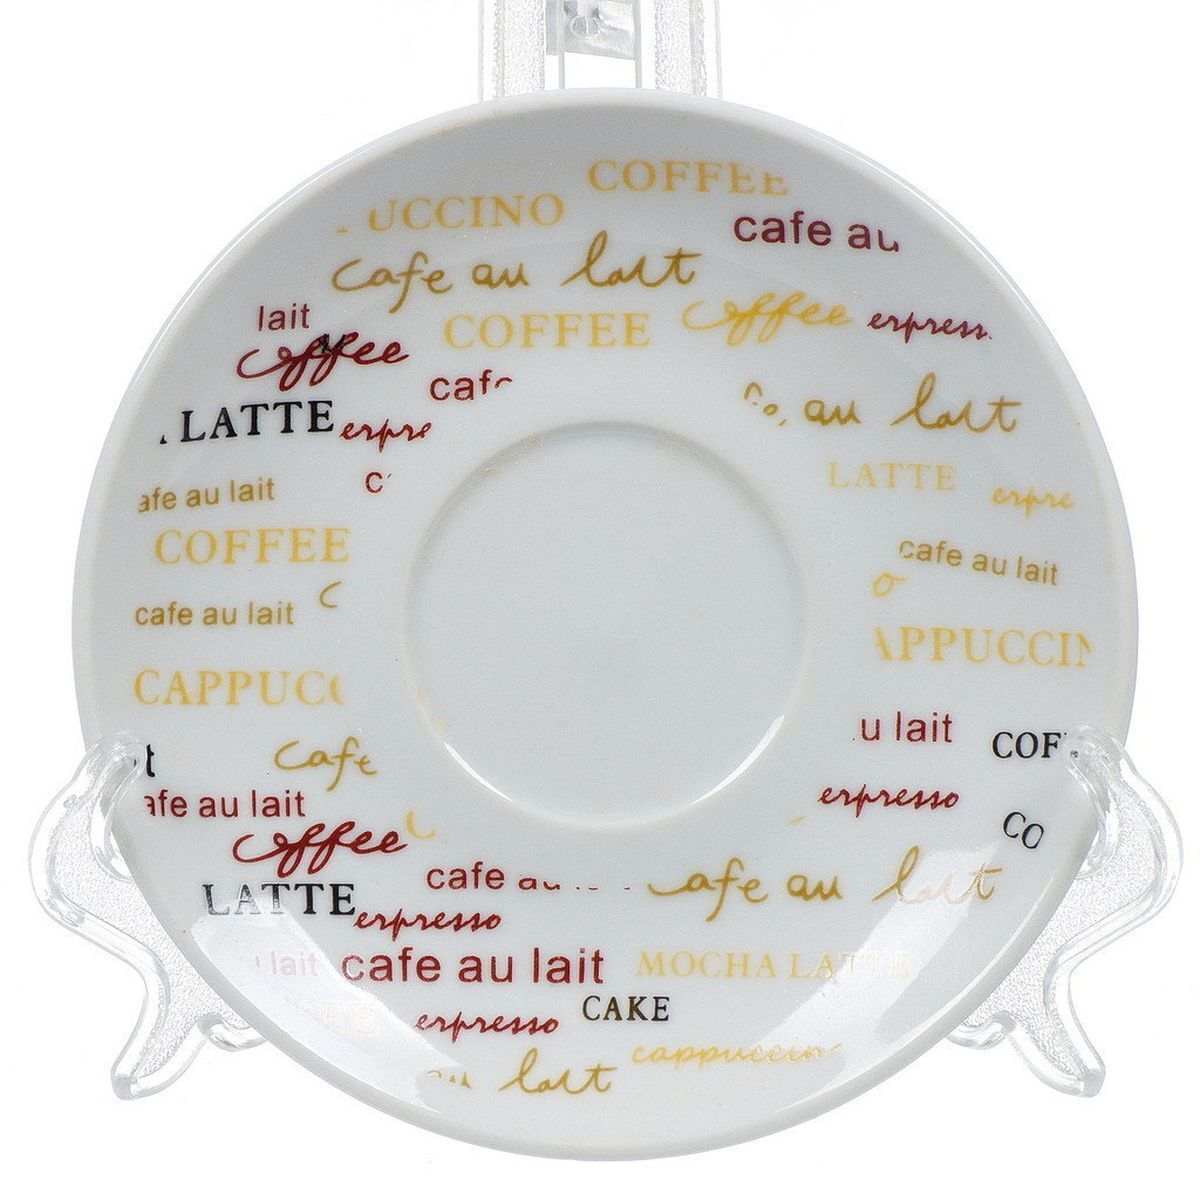 COFFEE
UCCINO
cafe au
cafe au lait
lait
COFFEE
coffee
erpress
coffee
caf
LATTE
erpre
au lait
LATTE
erpre
afe au lait
COFFEE
cafe au lait
cafe au lait
C
O
APPUCCIN
CAPPUCC
u lait
COF
cafe
t
afe au lait
erpresso
CO
coffee
cafe au
cafe au lait
LATTE
erpresso
lait
cafe au lait
MOCHA LATTE
CAKE
erpresso
cappuccin
au lait